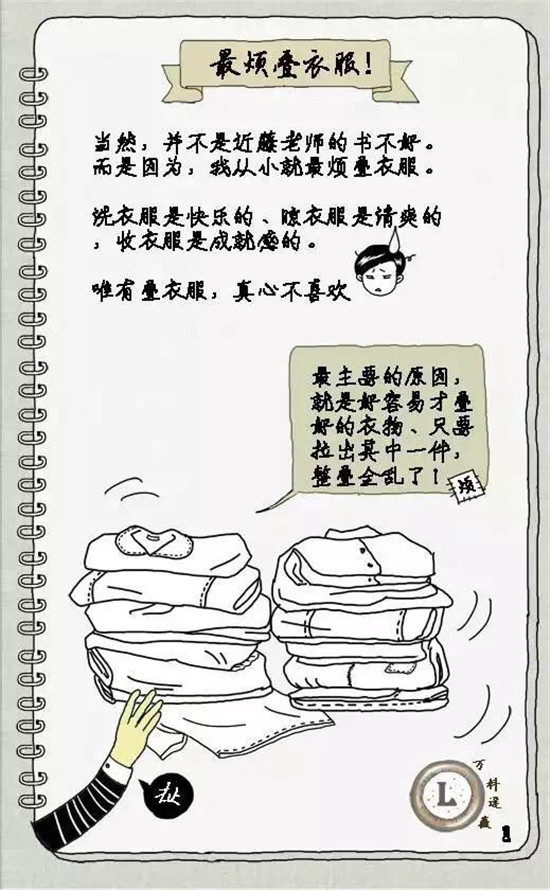 最烦叠衣服！
当然，并不是近藤老师的书不好。
而是因为，我从小就最烦叠衣服。
洗衣服是快乐的、晾衣服是清爽的
，收衣服是成就感的。
唯有叠衣服，真心不喜欢
最主要的原因，
就是好容易才叠
好的衣物、只要
拉出其中一件，
整叠全乱了！
烦
扯
L
1